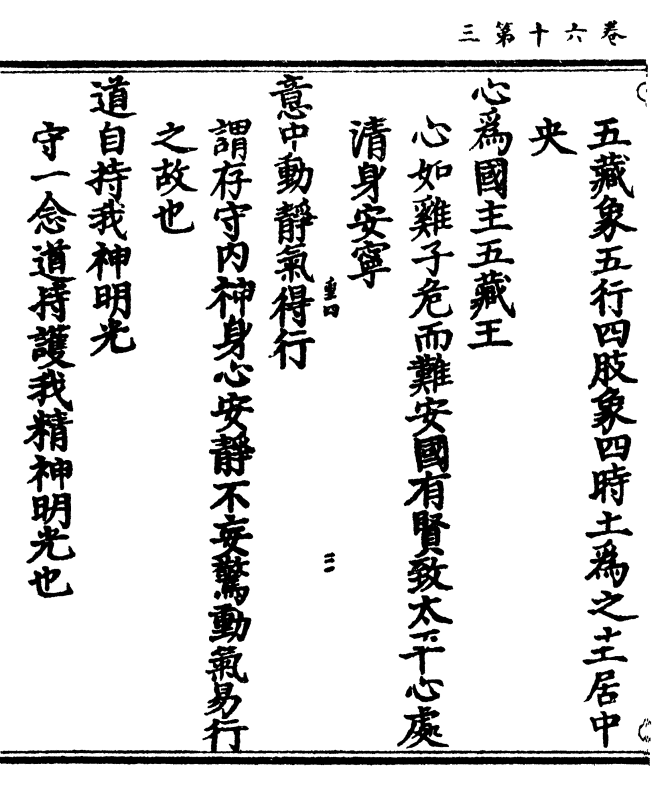 卷六十第三
五藏象五行四肢象四時土爲之主居中
央
心爲國主五藏王
心如雞子危而難安國有賢致太平心處
清身安寧
意中動靜氣得行
謂存守內神身心安靜不妄驚動氣易行
之故也
道自持我神明光
守一念道持護我精神明光也